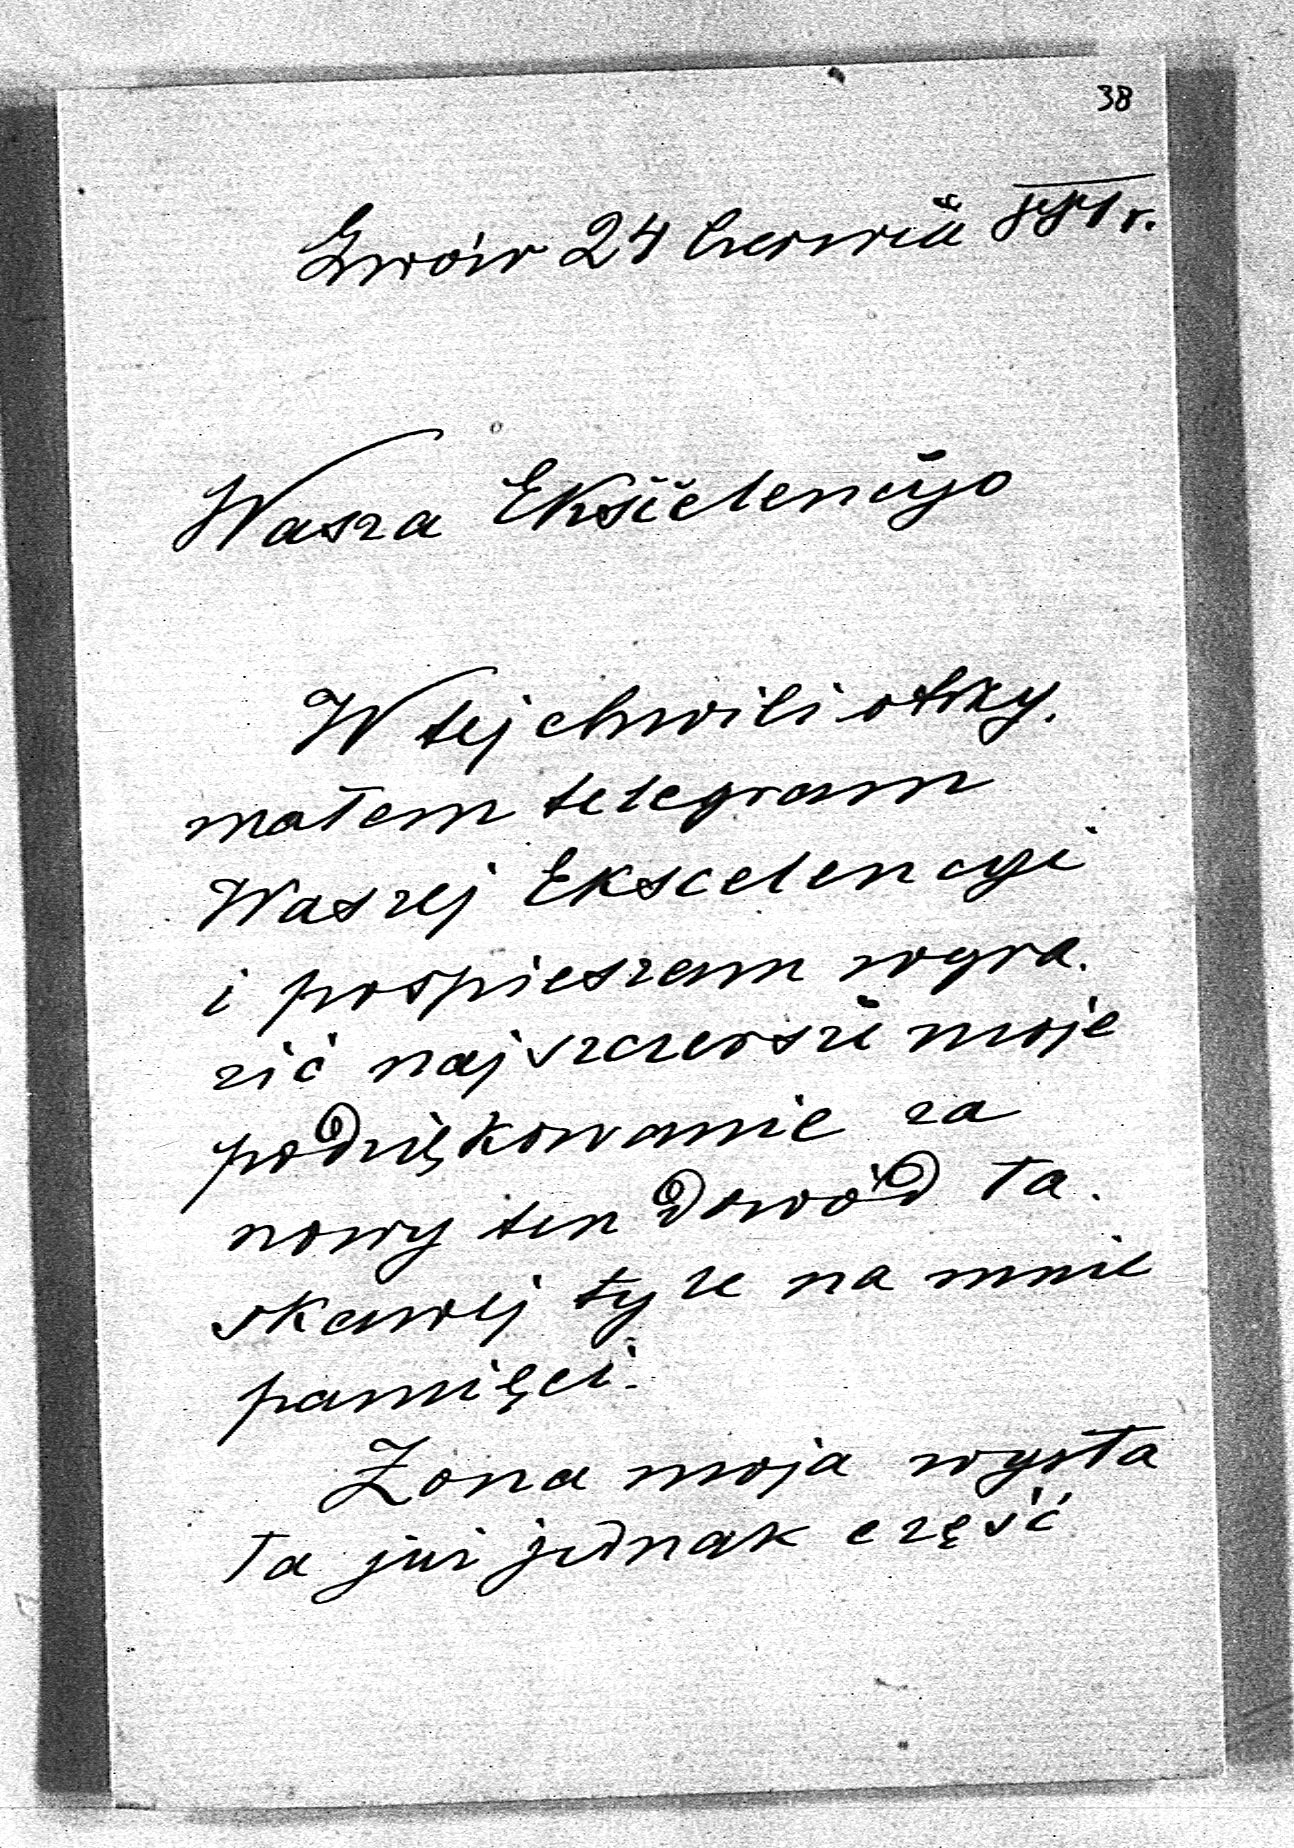 38
Lwów 24 Czerwca 881 r.
Wasza Ekscelencyjo
W tej chwili otrzy-
małem telegram
Waszej Ekscelencyi
i pospieszam wyra-
zić najszczersze moje
podziękowanie za
nowy ten dowód ła-
skawej tyle na mnie
pamięci.
Żona moja wysła
ła już jednak część